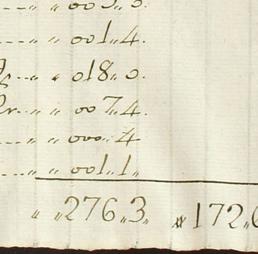 " " 001.4.
" " 018.0.
" " 007.4
" " 000.4
" " 001.1.
" " 276.3. " 172.